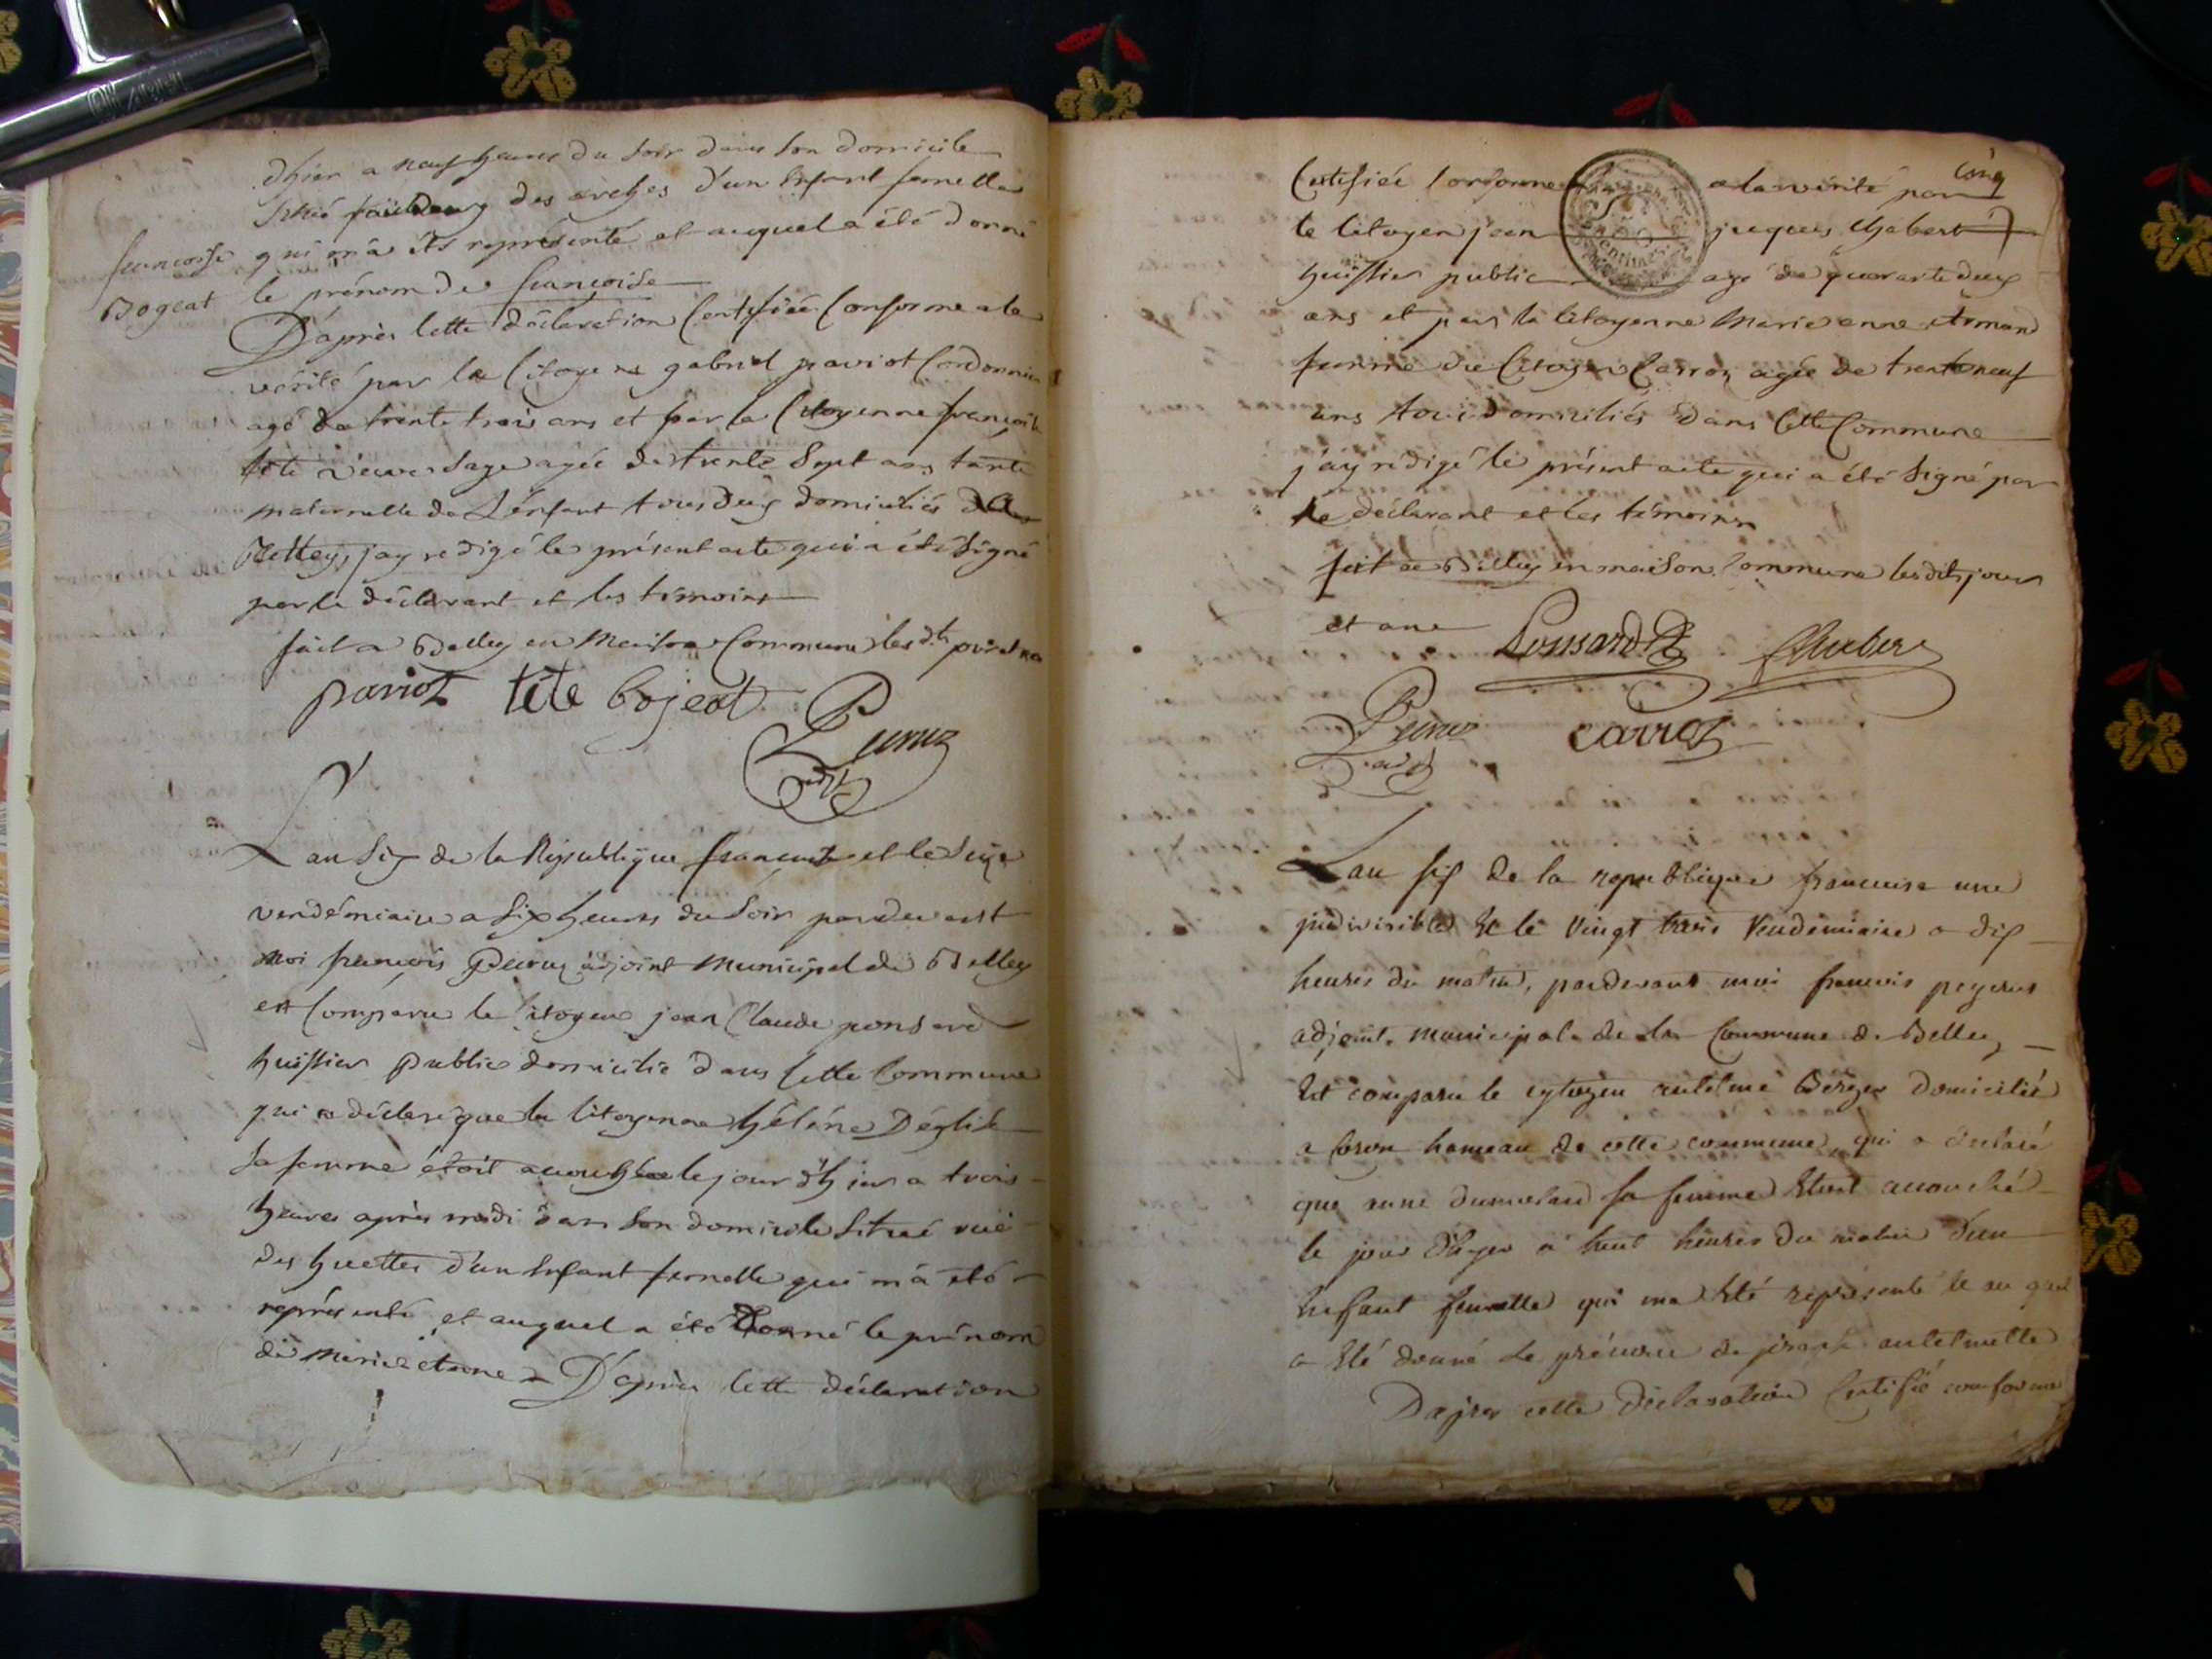 dhier a neuf heures du soir dans son domicile
situé fauxbourg des arches d'un Enfant femelle
qui m'a été représenté et auquel a été donné
le prénom de françoise
françoise
Bogeat
D'après Cette déclaration Certifiée Conforme a la
vérité par le Citoyen gabriel paviot Cordonnier
agé de trente trois ans et par la Citoyenne françoise
tête veuve sage agée de trente Sept ans tante
maternelle de L'enfant tous deux domiciliés
Belley, jay redigé le présent acte qui a été signé
par le déclarant et les témoins
fait a Belley en Maison Commune les dts jour et an
paviot tête bojeat
Peyruz
adjt
Lan Six de la République française et le Seize
vendémiaire a Six heures du Soir pardevant
moi françois Peyruz adjoint Municipal de Belley
est Comparu le Citoyen jean Claude ponsard
huissier public domicilié dans Cette Commune
qui a déclaré que la Citoyenne hélène Déglise
sa femme étoit accouchée le jour d'hier a trois
heures après midi dans Son domicile Situé rue
des huettes d'un Enfant femelle qui m'a été
représenté et auquel a été Donné le prénom
de marie D'après Cette déclaration
Cinq
Certifiée Conforme a la vérité par
le Citoyen jean jacques Chabert
huissier public agé de quarante deux
ans et par la Citoyenne Marie anne Armand
femme du Citoyen Carrot agée de trente neuf
ans tous domiciliés dans Cette Commune
j'ay redigé le présent acte qui a été Signé par
le déclarant et les témoins
fait a Belley en maison Commune les dits jour
et an Ponsard Chabert
Peyruz Carrot
adjt
Lan six de la republique francaise une
indivisible et le vingt trois Vendemiaire a dix
heures du matin, pardevant moi francois peyrus
adjoint municipale de la Commune de Belley
Est comparu le cytoyen antelme Berger domicilié
a Coron hameau de cette commune, qui a déclaré
que anne sa femme Etoit accouché
le jour d'hyer a huit heures du matin d'un
Enfant femelle qui ma Eté représenté et au quel
a Eté donné le prénom de antelmette
Dapres cette déclaration Certifié conforme